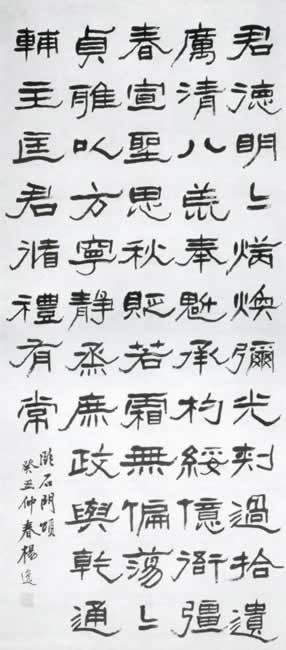 君德明〻炳煥彌光刺過拾遺
厲清八荒奉魁承杓綏億衙彊
春宣聖恩秋貶若霜無偏蕩〻
貞雅以方寧靜烝庶政與乾通
輔主匡君循禮有常
臨石門頌
癸丑仲春楊逸